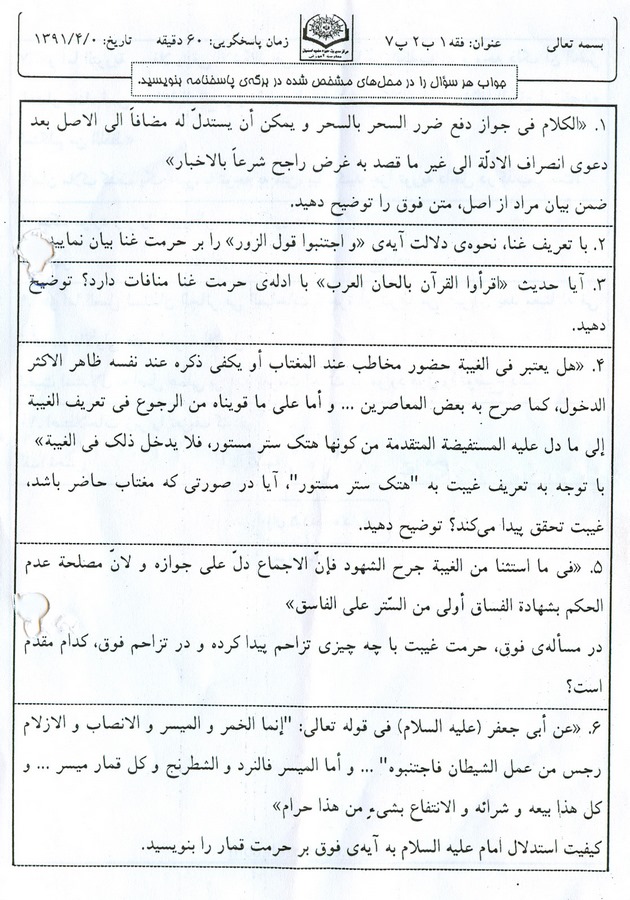 بسمه تعالی عنوان: فقه ۱ ب ۲ پ ۷ زمان پاسخگویی: ۶۰ دقیقه تاریخ: ۱۳۹۱/۴/۰
جواب هر سؤال را در محل‌های مشخص شده در برگه‌ی پاسخنامه بنویسید.
۱. «الکلام فی جواز دفع ضرر السحر بالسحر و یمکن أن یستدلّ له مضافاً الی الاصل بعد
دعوی انصراف الادلّة الی غیر ما قصد به غرض راجح شرعاً بالاخبار»
ضمن بیان مراد از اصل، متن فوق را توضیح دهید.
۲. با تعریف غنا، نحوه‌ی دلالت آیه‌ی «و اجتنبوا قول الزور» را بر حرمت غنا بیان نمایید.
۳. آیا حدیث «اقرأوا القرآن بالحان العرب» با ادله‌ی حرمت غنا منافات دارد؟ توضیح
دهید.
۴. «هل یعتبر فی الغیبة حضور مخاطب عند المغتاب أو یکفی ذکره عند نفسه ظاهر الاکثر
الدخول، کما صرح به بعض المعاصرین ... و أما علی ما قویناه من الرجوع فی تعریف الغیبة
إلی ما دل علیه المستفیضة المتقدمة من کونها هتک ستر مستور، فلا یدخل ذلک فی الغیبة»
با توجه به تعریف غیبت به "هتک ستر مستور"، آیا در صورتی که مغتاب حاضر باشد،
غیبت تحقق پیدا می‌کند؟ توضیح دهید.
۵. «فی ما استثنا من الغیبة جرح الشهود فإنّ الاجماع دلّ علی جوازه و لانّ مصلحة عدم
الحکم بشهادة الفساق أولی من السّتر علی الفاسق»
در مسأله‌ی فوق، حرمت غیبت با چه چیزی تزاحم پیدا کرده و در تزاحم فوق، کدام مقدم
است؟
۶. «عن أبی جعفر (علیه السلام) فی قوله تعالی: "إنما الخمر و المیسر و الانصاب و الازلام
رجس من عمل الشیطان فاجتنبوه" ... و أما المیسر فالنرد و الشطرنج و کل قمار میسر ... و
کل هذا بیعه و شرائه و الانتفاع بشیء من هذا حرام»
کیفیت استدلال امام علیه السلام به آیه‌ی فوق بر حرمت قمار را بنویسید.